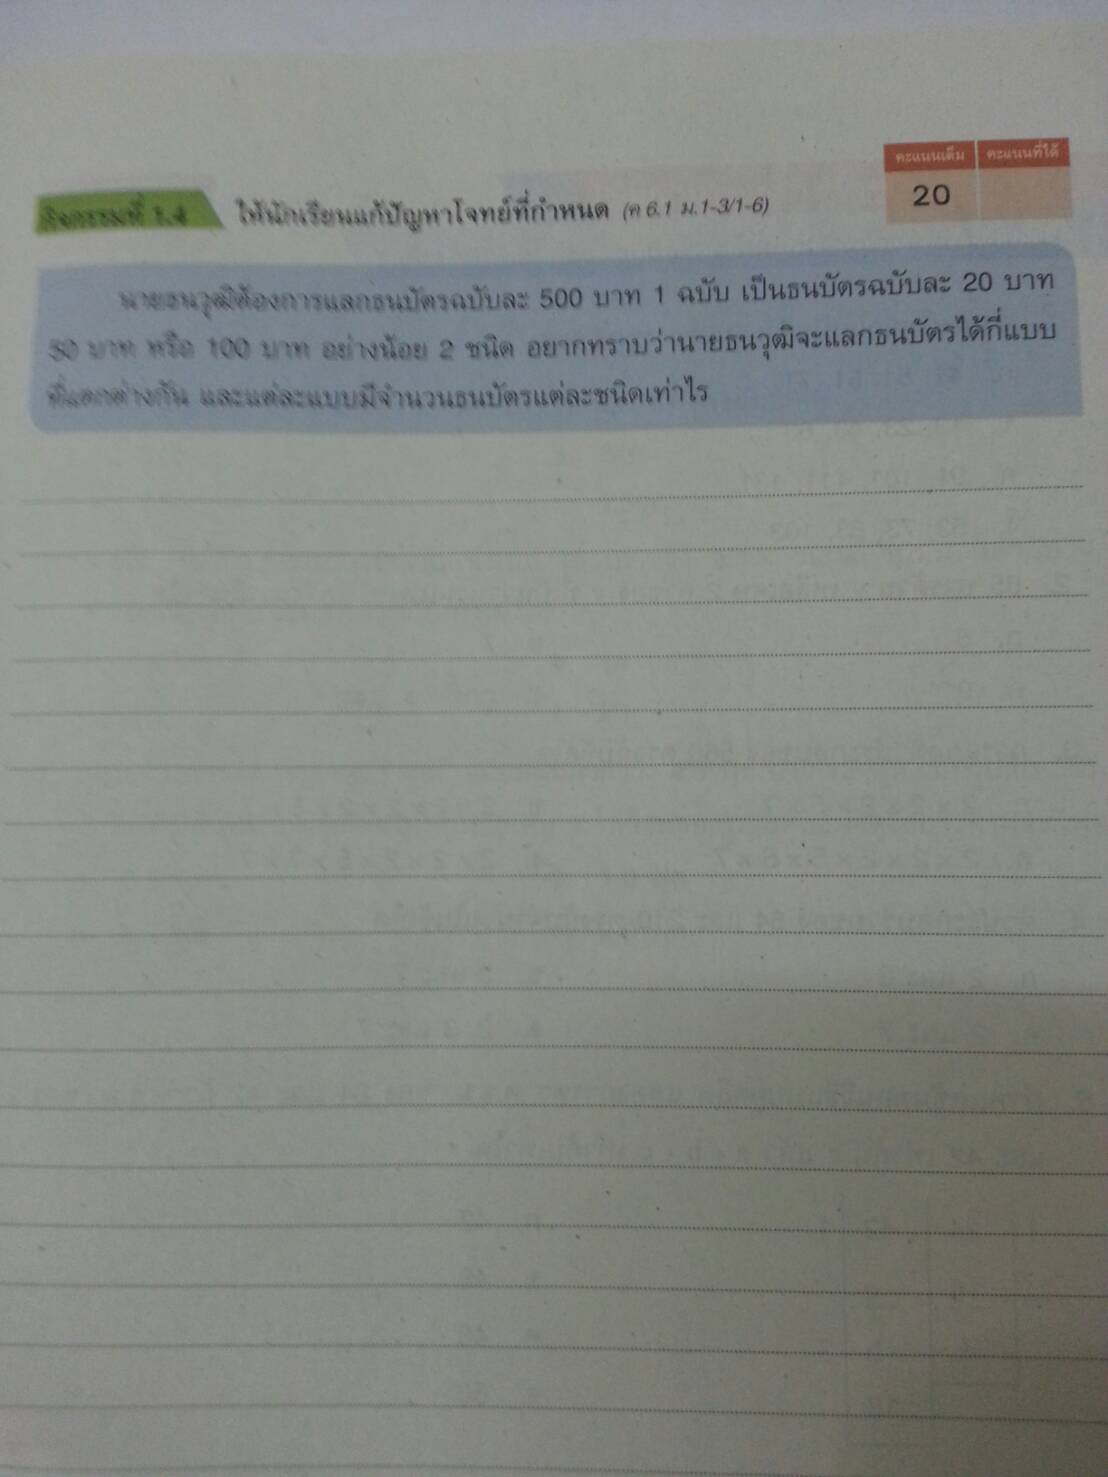 คะแนนเต็ม คะแนนที่ได้
20
กิจกรรมที่ 1.4 ให้นักเรียนแก้ปัญหาโจทย์ที่กำหนด (ค 6.1 ม.1-3/1-6)
นายธนวุฒิต้องการแลกธนบัตรฉบับละ 500 บาท 1 ฉบับ เป็นธนบัตรฉบับละ 20 บาท
50 บาท หรือ 100 บาท อย่างน้อย 2 ชนิด อยากทราบว่านายธนวุฒิจะแลกธนบัตรได้กี่แบบ
ที่แตกต่างกัน และแต่ละแบบมีจำนวนธนบัตรแต่ละชนิดเท่าไร